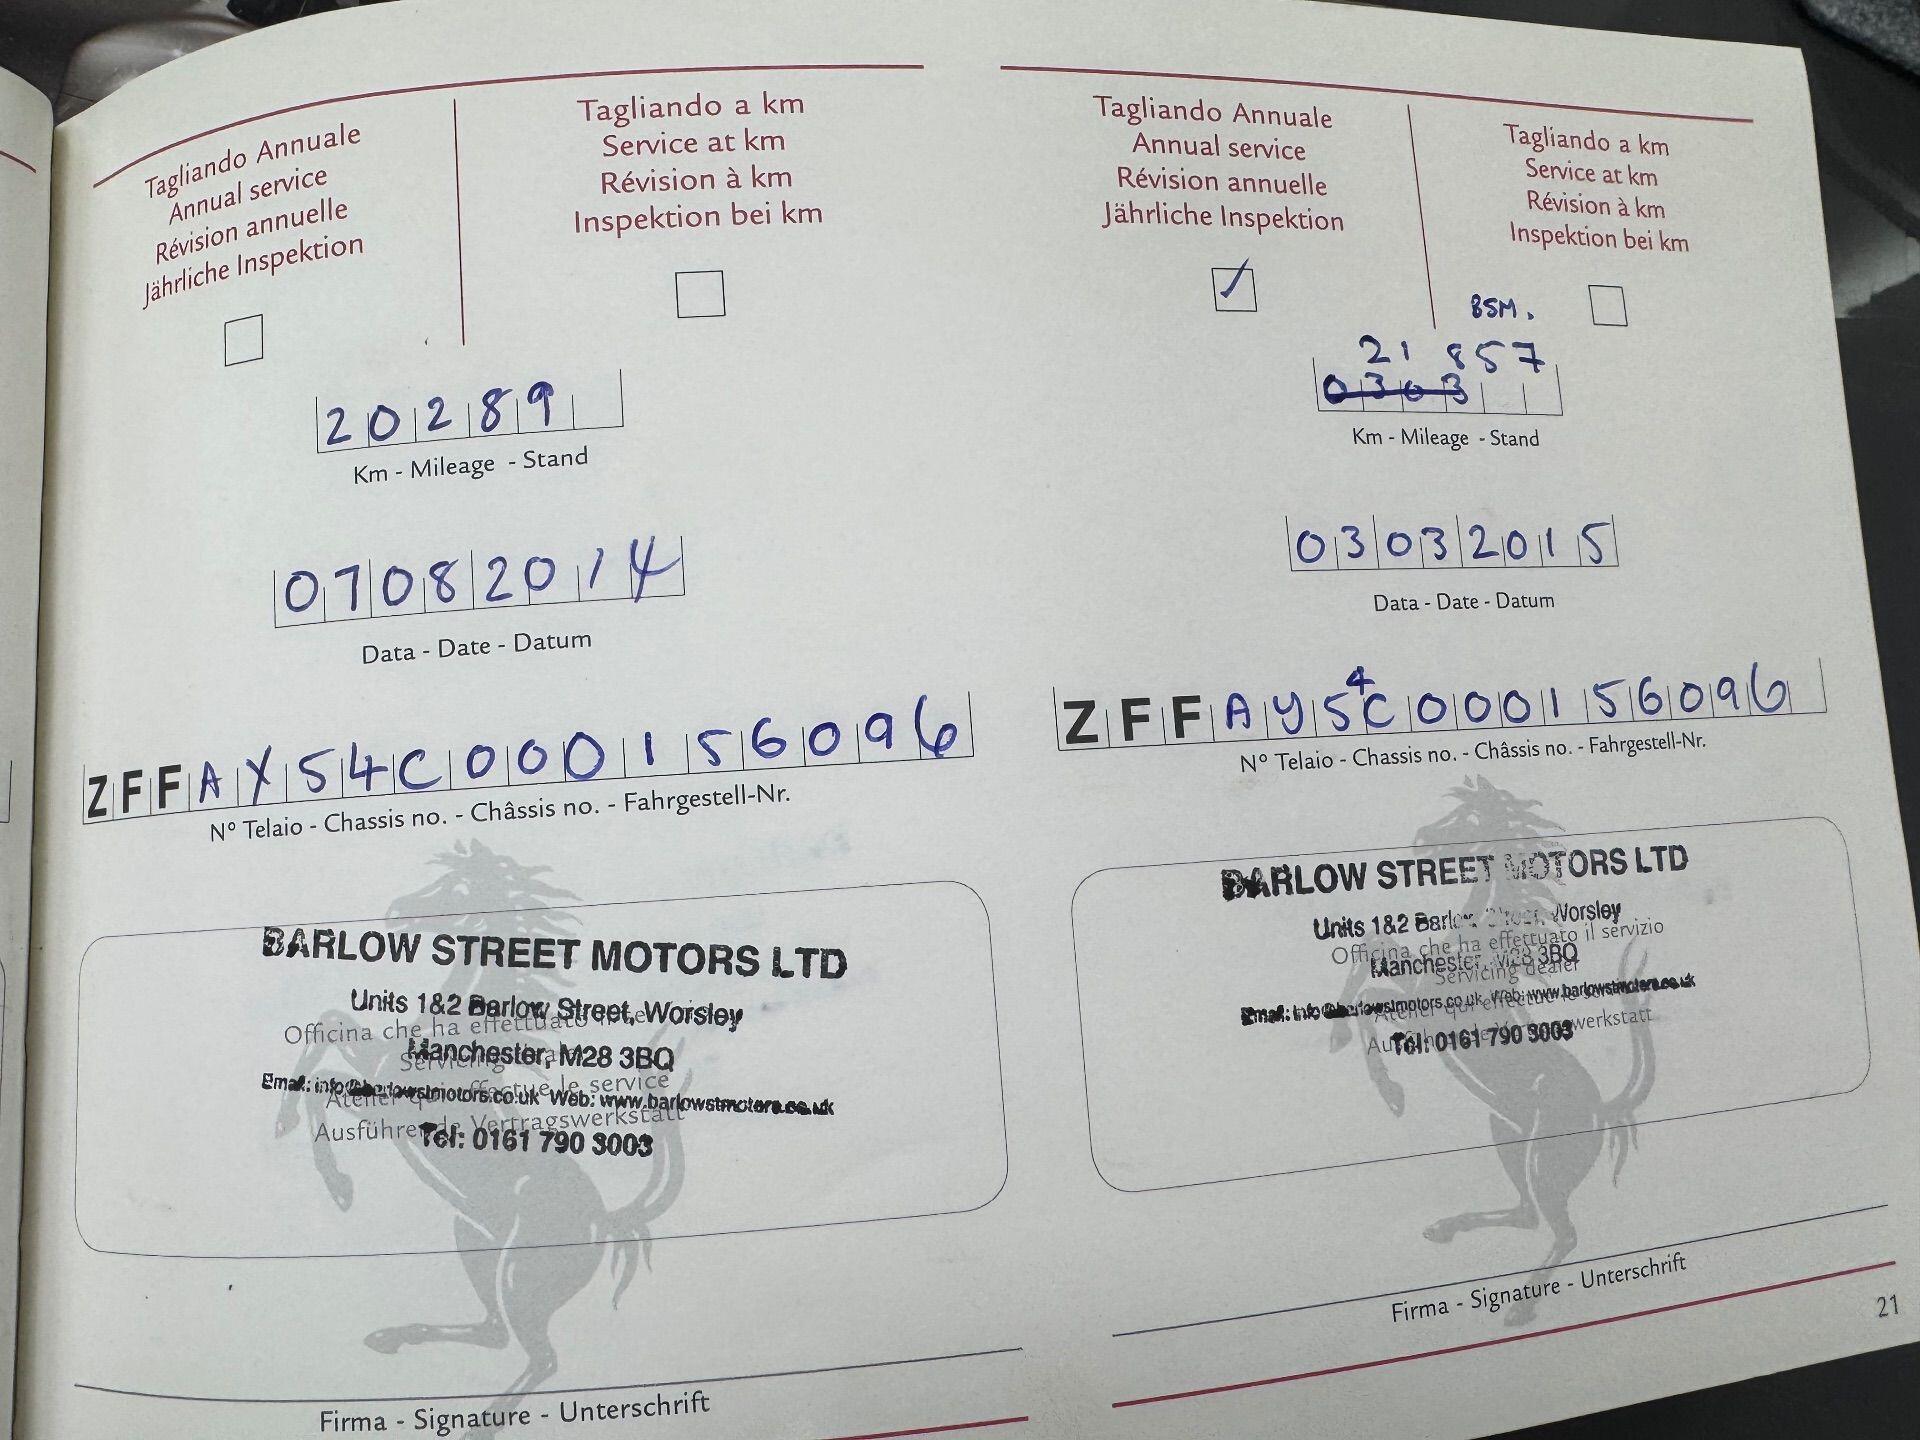 Tagliando Annuale
Annual service
Révision annuelle
Jährliche Inspektion
Tagliando a km
Service at km
Révision à km
Inspektion bei km
20289
Km - Mileage - Stand
07082014
Data - Date - Datum
ZFFAY54C000156096
N° Telaio - Chassis no. - Châssis no. - Fahrgestell-Nr.
BARLOW STREET MOTORS LTD
Units 1&2 Barlow Street, Worsley
Officina che ha effettuato il
Manchester, M28 3BQ
Servicing
Email: info@barlowstmotors.co.uk Web: www.barlowstmotors.co.uk
Atelier qui effectue le service
Ausführende Vertragswerkstatt
Tel: 0161 790 3003
Firma - Signature - Unterschrift
Tagliando Annuale
Annual service
Révision annuelle
Jährliche Inspektion
✓
Tagliando a km
Service at km
Révision à km
Inspektion bei km
BSM.
21 857
0303
Km - Mileage - Stand
03032015
Data - Date - Datum
ZFFAY54C000156096
N° Telaio - Chassis no. - Châssis no. - Fahrgestell-Nr.
BARLOW STREET MOTORS LTD
Units 1&2 Barlow Street, Worsley
Officina che ha effettuato il servizio
Manchester, M28 3BQ
Servicing dealer
Email: info@barlowstmotors.co.uk Web: www.barlowstmotors.co.uk
Atelier qui effectue le
Tel: 0161 790 3003
Firma - Signature - Unterschrift
21